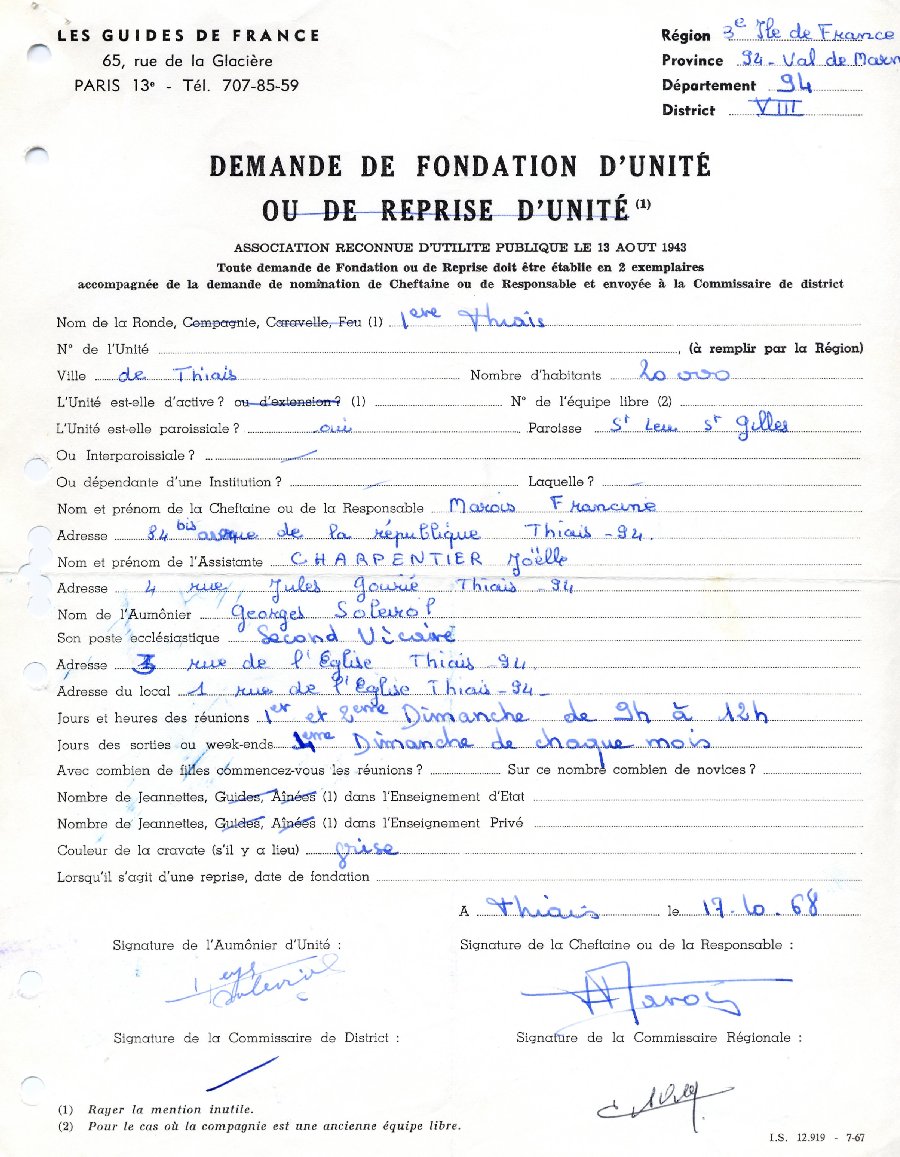 LES GUIDES DE FRANCE
65, rue de la Glacière
PARIS 13e - Tél. 707-85-59
Région 3e Ile de France
Province 94 - Val de Marn
Département 94
District VIII
DEMANDE DE FONDATION D'UNITÉ
OU DE REPRISE D'UNITÉ (1)
ASSOCIATION RECONNUE D'UTILITE PUBLIQUE LE 13 AOUT 1943
Toute demande de Fondation ou de Reprise doit être établie en 2 exemplaires
accompagnée de la demande de nomination de Cheftaine ou de Responsable et envoyée à la Commissaire de district
Nom de la Ronde, Compagnie, Caravelle, Feu (1) 1ere Thiais
N° de l'Unité (à remplir par la Région)
Ville de Thiais Nombre d'habitants 20 000
L'Unité est-elle d'active ? ou d'extension ? (1) N° de l'équipe libre (2)
L'Unité est-elle paroissiale ? oui Paroisse St Leu St Gilles
Ou Interparoissiale ?
Ou dépendante d'une Institution ? Laquelle ?
Nom et prénom de la Cheftaine ou de la Responsable Marois Francine
Adresse 84 bis de la république Thiais - 94.
Nom et prénom de l'Assistante CHARPENTIER Joëlle
Adresse 4 rue Jules Gourié Thiais - 94
Nom de l'Aumônier Georges Soleirol
Son poste ecclésiastique Second Vicaire
Adresse 3 rue de l'Eglise Thiais - 94.
Adresse du local 1 rue de l'Eglise Thiais - 94 -
Jours et heures des réunions 1er et 2eme Dimanche de 9h à 12h
Jours des sorties ou week-ends 4eme Dimanche de chaque mois
Avec combien de filles commencez-vous les réunions ? Sur ce nombre combien de novices ?
Nombre de Jeannettes, Guides, Aînées (1) dans l'Enseignement d'Etat
Nombre de Jeannettes, Guides, Aînées (1) dans l'Enseignement Privé
Couleur de la cravate (s'il y a lieu) grise
Lorsqu'il s'agit d'une reprise, date de fondation
A Thiais le 17.10.68
Signature de l'Aumônier d'Unité : Signature de la Cheftaine ou de la Responsable :
Marois
Signature de la Commissaire de District : Signature de la Commissaire Régionale :
(1) Rayer la mention inutile.
(2) Pour le cas où la compagnie est une ancienne équipe libre.
I.S. 12.919 - 7-67